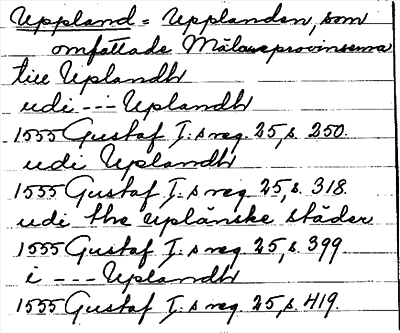 Uppland = Upplanden, som
omfattade Mälareprovinserna
till Uplandh
udi --- Uplandh
1555 Gustaf I:s reg. 25, s. 250.
udi Uplandh
1555 Gustaf I:s reg. 25, s. 318.
udi the uplänske städer
1555 Gustaf I:s reg. 25, s. 399.
i --- Uplandh
1555 Gustaf I:s reg. 25, s. 419.